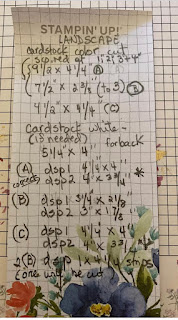 STAMPIN' UP!
LANDSCAPE
cardstock color cut
scored at 1, 2, 3 + 4"
9 1/2 x 4 1/4" (A)
7 1/2 x 2 3/8" (B)
4 1/2" x 4 1/4" (C)
Cardstock white -
(is needed) for back
5 1/4" x 4"
(A) dsp1 4 1/4 x 4"
dsp2 4" x 3 3/4" *
(B) dsp1 3 1/4 x 2 1/8"
dsp2 3" x 1 7/8"
(C) dsp1 4 1/4" x 4
dsp2 4" x 3 3/4 *
2 (B) dsp 1 x 4 1/4 strips
(one will be cut